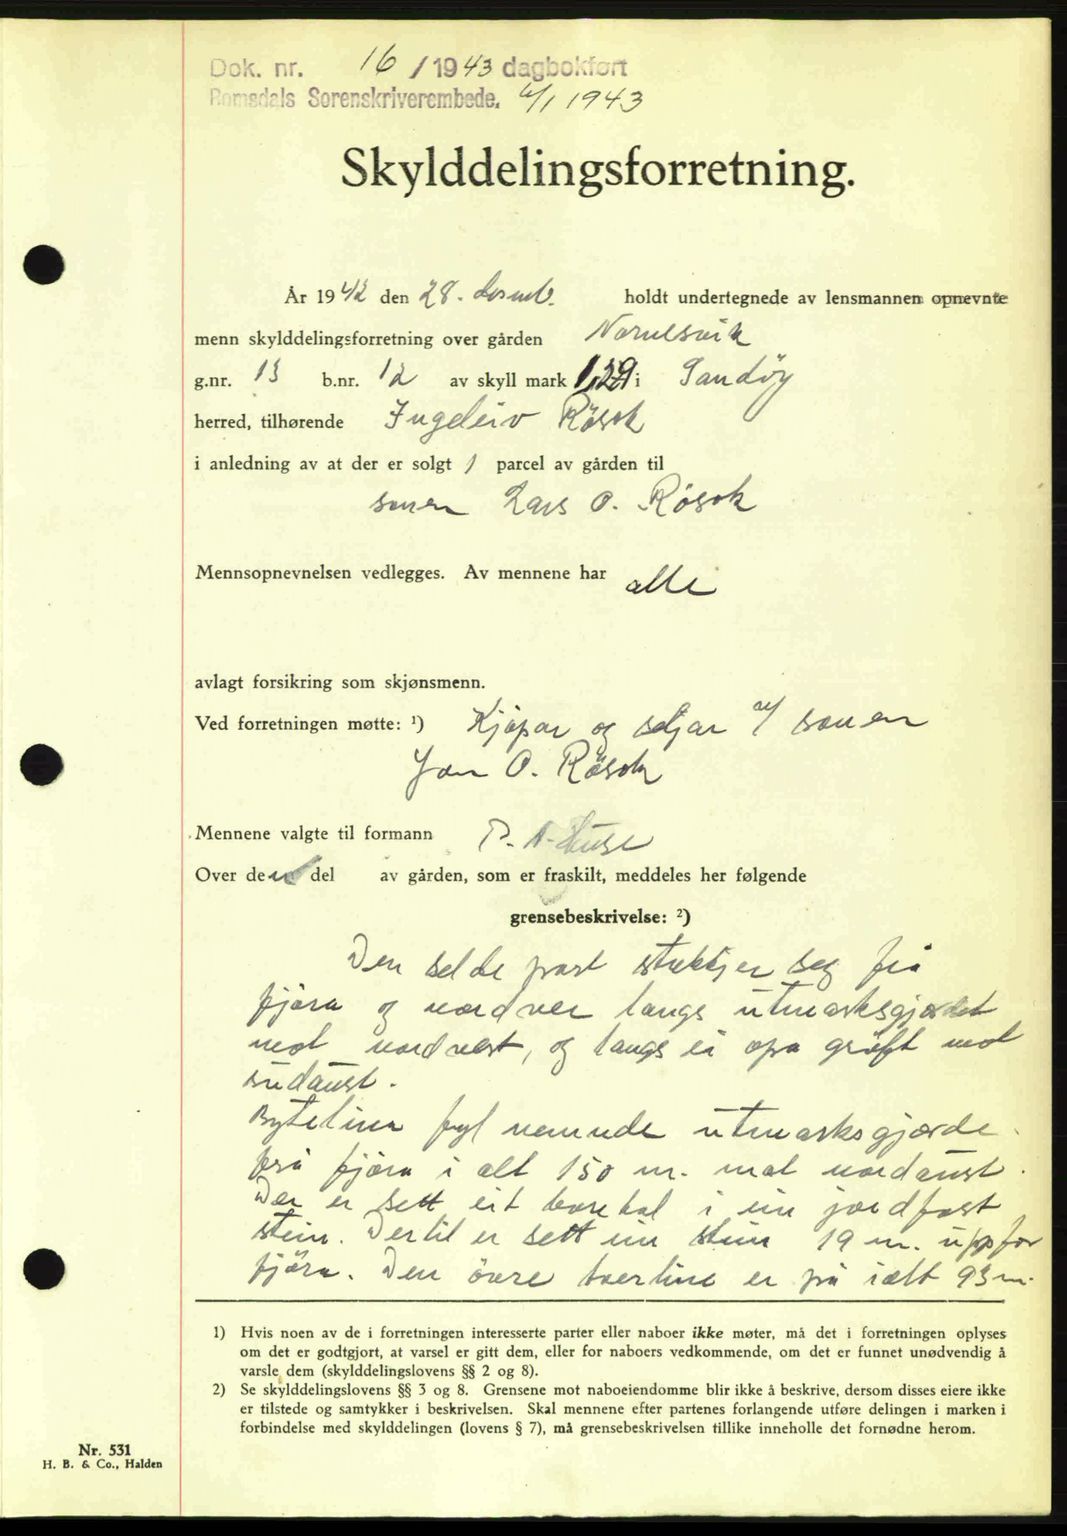 Dok. nr. 16 / 1943 dagbokført
Romsdals Sorenskriverembede. 6/1 1943
Skylddelingsforretning.
År 1942 den 28. desemb. holdt undertegnede av lensmannen opnevnte
menn skylddelingsforretning over gården
g.nr. 13 b.nr. 12 av skyll mark 1,29 i Sandøy
herred, tilhørende Ingeleiv Røsok
i anledning av at der er solgt 1 parcel av gården til
sonen Lars O. Røsok
Mennsopnevnelsen vedlegges. Av mennene har alle
avlagt forsikring som skjønsmenn.
Ved forretningen møtte: ¹) Kjøpar og seljar v/ sonen
Jon O. Røsok
Mennene valgte til formann P. A. Huse
Over den del av gården, som er fraskilt, meddeles her følgende
grensebeskrivelse: ²)
Den selde part strekkjer seg frå
fjøra og nordver langs utmarksgjordet
mot nordvest, og langs ei opa grøft mot
sudaust.
Bytelina fyl nemnde utmarksgjorde
frå fjøra i alt 150 m. mot nordaust.
Der er sett eit borehol i ein jordfast
stein. Dertil er sett ein stein 19 m. uppfor
fjøra. Den övre tverline er på ialt 93 m.
1) Hvis noen av de i forretningen interesserte parter eller naboer ikke møter, må det i forretningen oplyses
om det er godtgjort, at varsel er gitt dem, eller for naboers vedkommende, om det er funnet unødvendig å
varsle dem (skylddelingslovens §§ 2 og 8).
2) Se skylddelingslovens §§ 3 og 8. Grensene mot naboeiendomme blir ikke å beskrive, dersom disses eiere ikke
er tilstede og samtykker i beskrivelsen. Skal mennene efter partenes forlangende utføre delingen i marken i
forbindelse med skylddelingen (lovens § 7), må grensebeskrivelsen tillike inneholle det fornødne herom.
Nr. 531
H. B. & Co., Halden